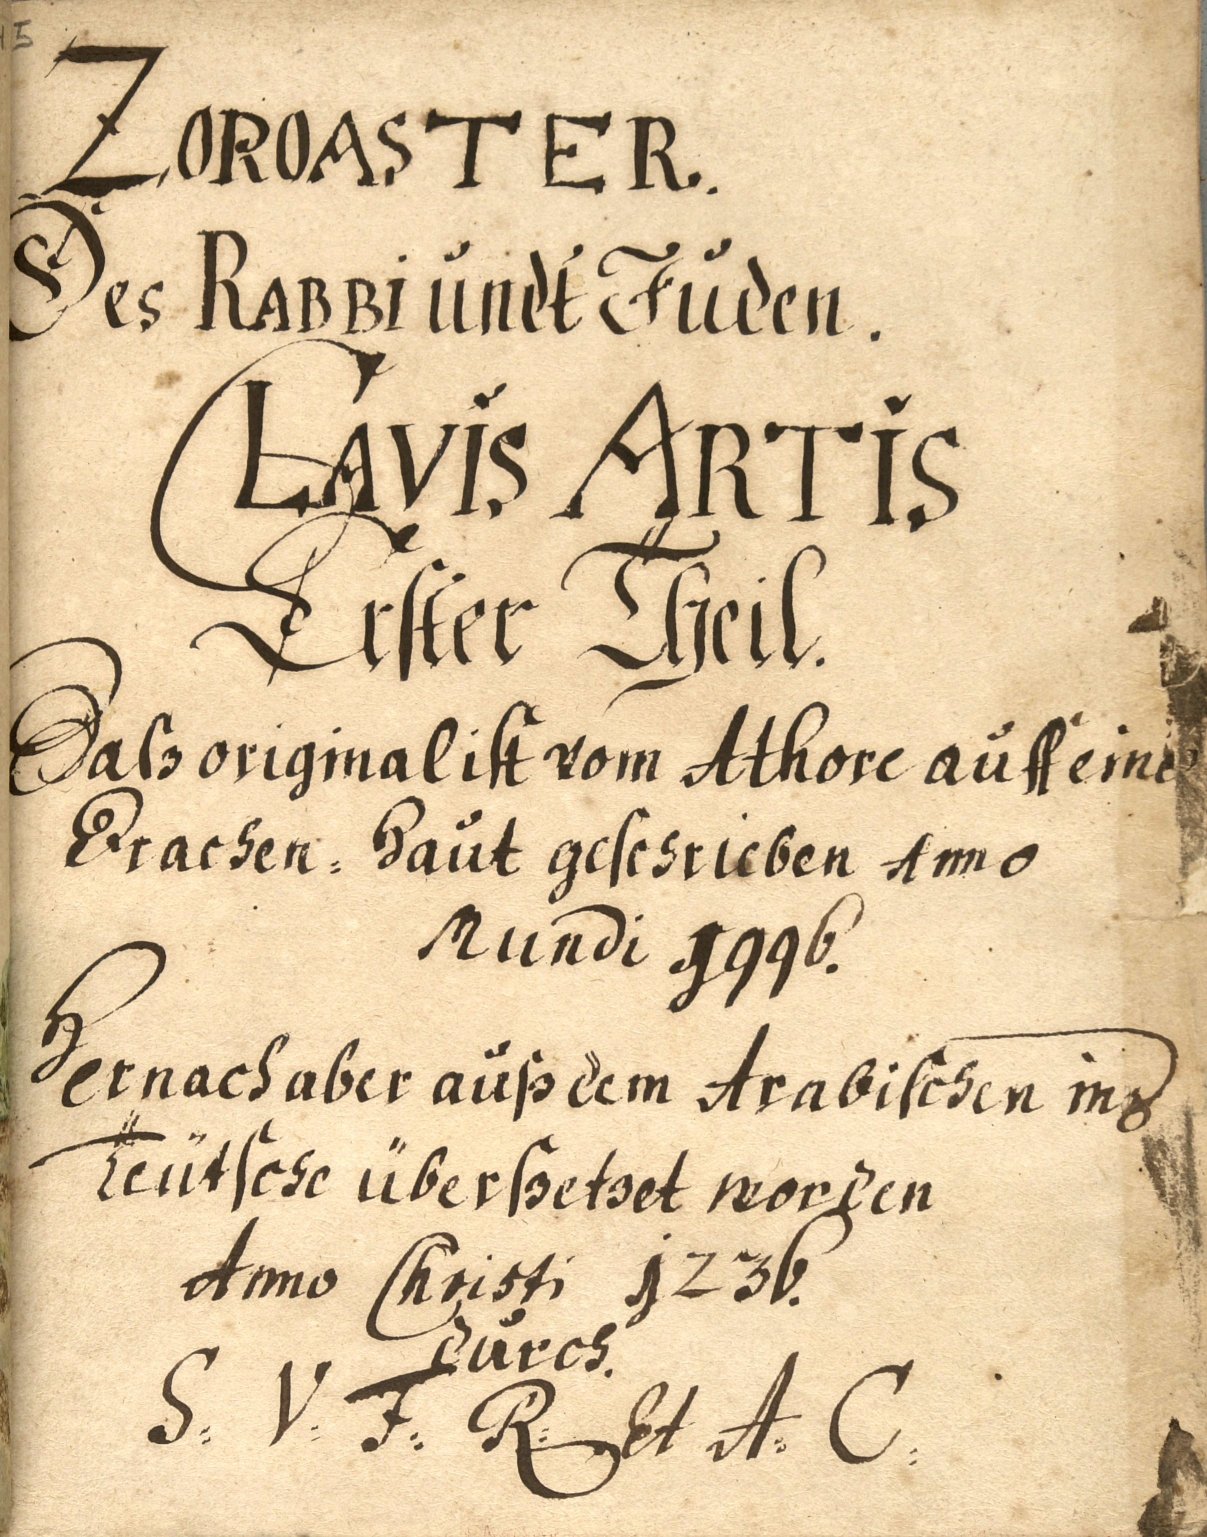 ZOROASTER.
Des RABBi ŭndt Jŭden.
CLAViS ARTiS
Erster Theil.
Daß original ist vom Athore aŭff eine
Drachen: Haŭt geschrieben Anno
Mundi 1996.
Hernach aber aŭß dem Arabischen ins
Teütsche überßetzet worden
Anno Christi 1236.
dŭrch.
S: V: F: R: Et A: C: